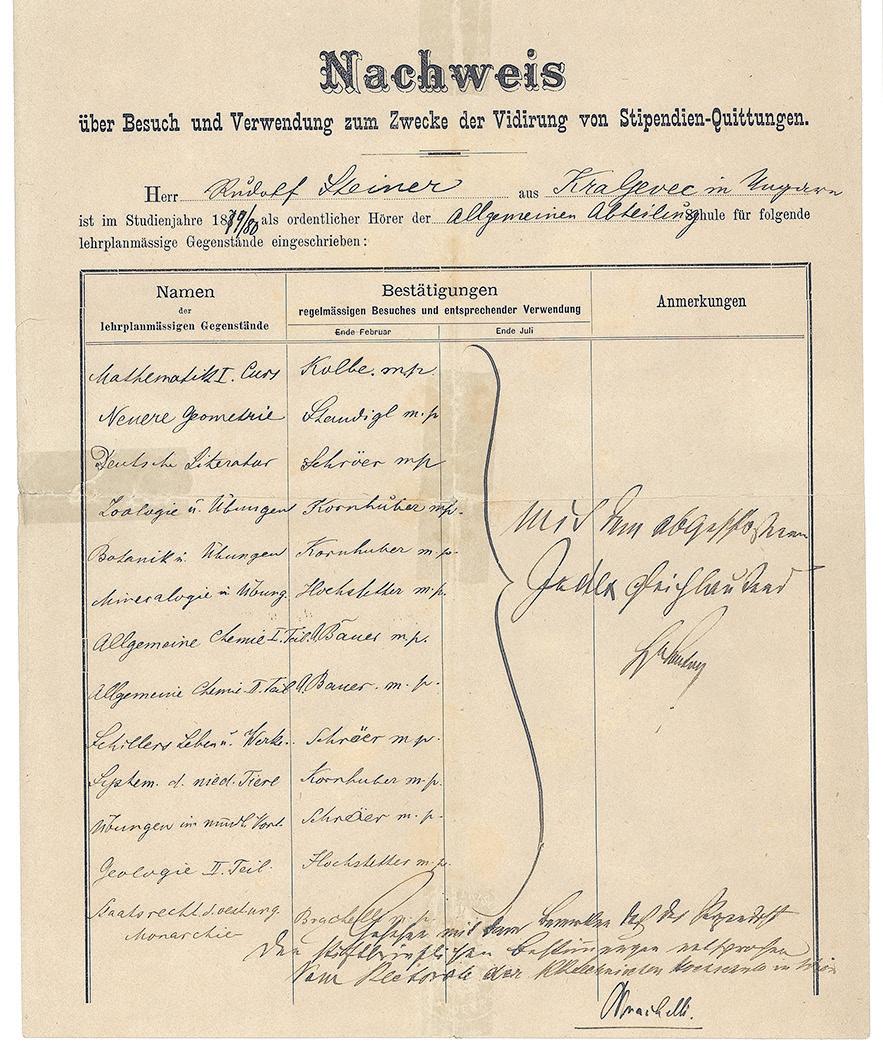 Nachweis
über Besuch und Verwendung zum Zwecke der Vidirung von Stipendien-Quittungen.
Herr Rudolf Steiner aus Kraljevec in Ungarn
ist im Studienjahre 1879/80 als ordentlicher Hörer der Allgemeinen Abteilung Schule für folgende
lehrplanmässige Gegenstände eingeschrieben:
Namen
der
lehrplanmässigen Gegenstände
Bestätigungen
regelmässigen Besuches und entsprechender Verwendung
Ende Februar
Ende Juli
Anmerkungen
Mathematik I. Curs Kolbe. m.p.
Neuere Geometrie Staudigl m.p
Deutsche Literatur Schröer mp
Zoologie u. Übungen Kornhuber mp.
Botanik u. Übungen Kornhuber m.p.
Mineralogie u Übung. Hochstetter m.p.
Allgemeine Chemie I. Teil. Bauer m.p.
Allgemeine Chemie II. Teil Bauer. m.p.
Schillers Leben u. Werke. Schröer m.p.
System. d. nied. Tiere Kornhuber m.p.
Übungen im mündl. Vort. Schröer m.p.
Geologie II. Teil. Hochstetter m.p.
Staatsrecht d. oest.ung. Brachelli m.p.
Monarchie
Mit dem abgeschlossenen
Index gleichlautend
Gesehen mit dem Bemerken daß der Stipendist
den stiftbrieflichen Bestimmungen entsprochen
Vom Rectorate der k. k. technischen Hochschule in Wien
Brachelli.